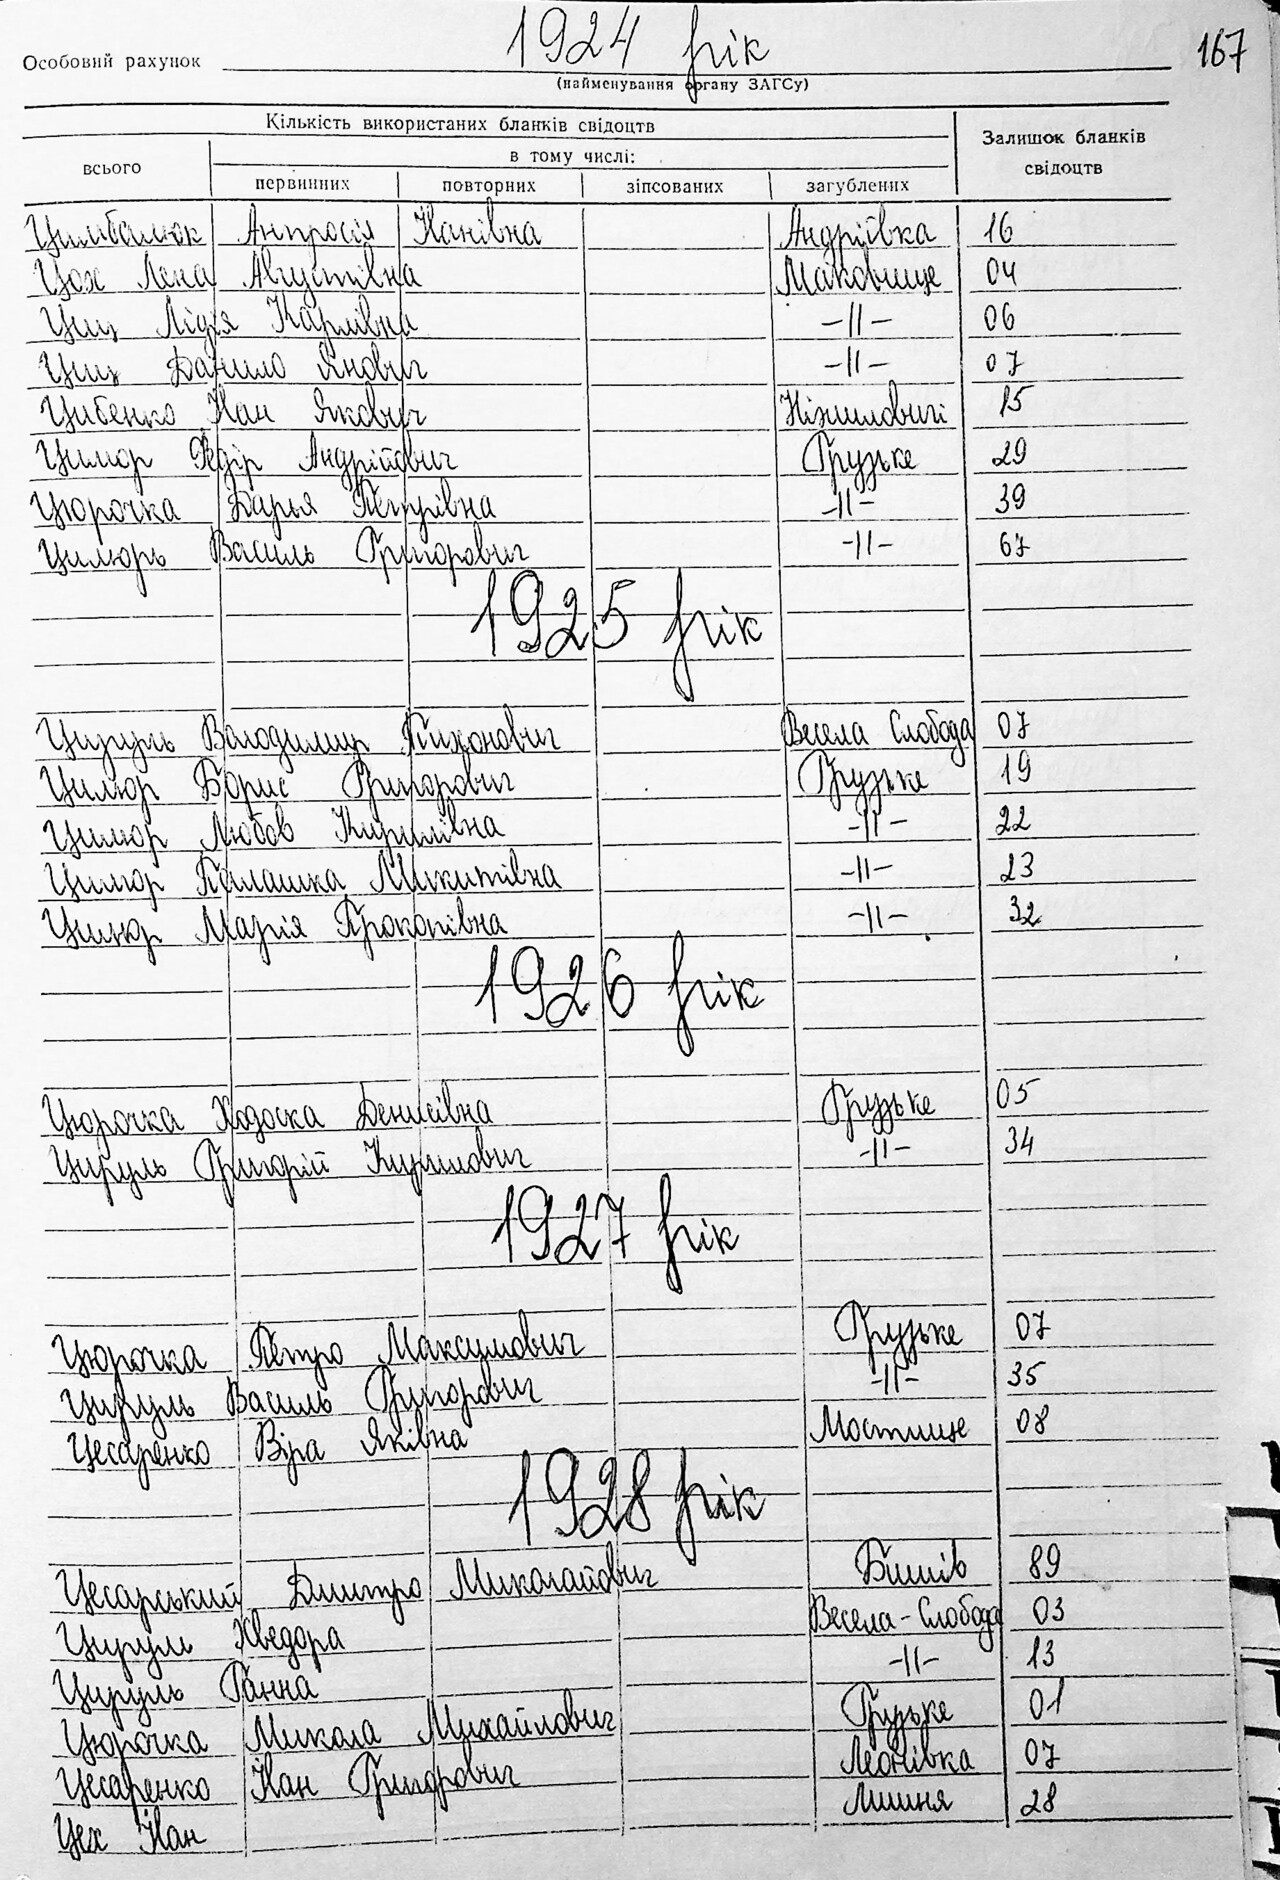 1924 рік
167
Особовий рахунок
(найменування органу ЗАГСу)
Кількість використаних бланків свідоцтв
Залишок бланків свідоцтв
всього
в тому числі:
первинних повторних зіпсованих загублених
Цимбалюк Антросія Іванівна Андріївка 16
Цох Лена Августівна Маковище 04
Лідія Карлівна -//- 06
Данило Янович -//- 07
Цибенко Іван Якович Ніжиловичі 15
Цимор Федір Андрійович Грузьке 29
Цюрочка Дарья Петрівна -//- 39
Цилюрь Василь Григорович -//- 67
1925 рік
Цируль Володимир Тихонович Весела Слобода 07
Цилюр Борис Григорович Грузьке 19
Цилюр Любов Кирилівна -//- 22
Цилюр Палашка Микитівна -//- 23
Цилюр Марія Прокопівна -//- 32
1926 рік
Цюрочка Ходоска Денисівна Грузьке 05
Цируль Григорій Кирилович -//- 34
1927 рік
Цюрочка Петро Максимович Грузьке 07
Цируль Василь Григорович -//- 35
Цесаренко Віра Яківна Мостище 08
1928 рік
Цесарський Дмитро Миколайович Бишів 89
Цируль Хведора Весела-Слобода 03
Цируль Ганна -//- 13
Цюрочка Микола Михайлович Грузьке 01
Цесаренко Іван Григорович Леонівка 07
Цех Іван Лишня 28